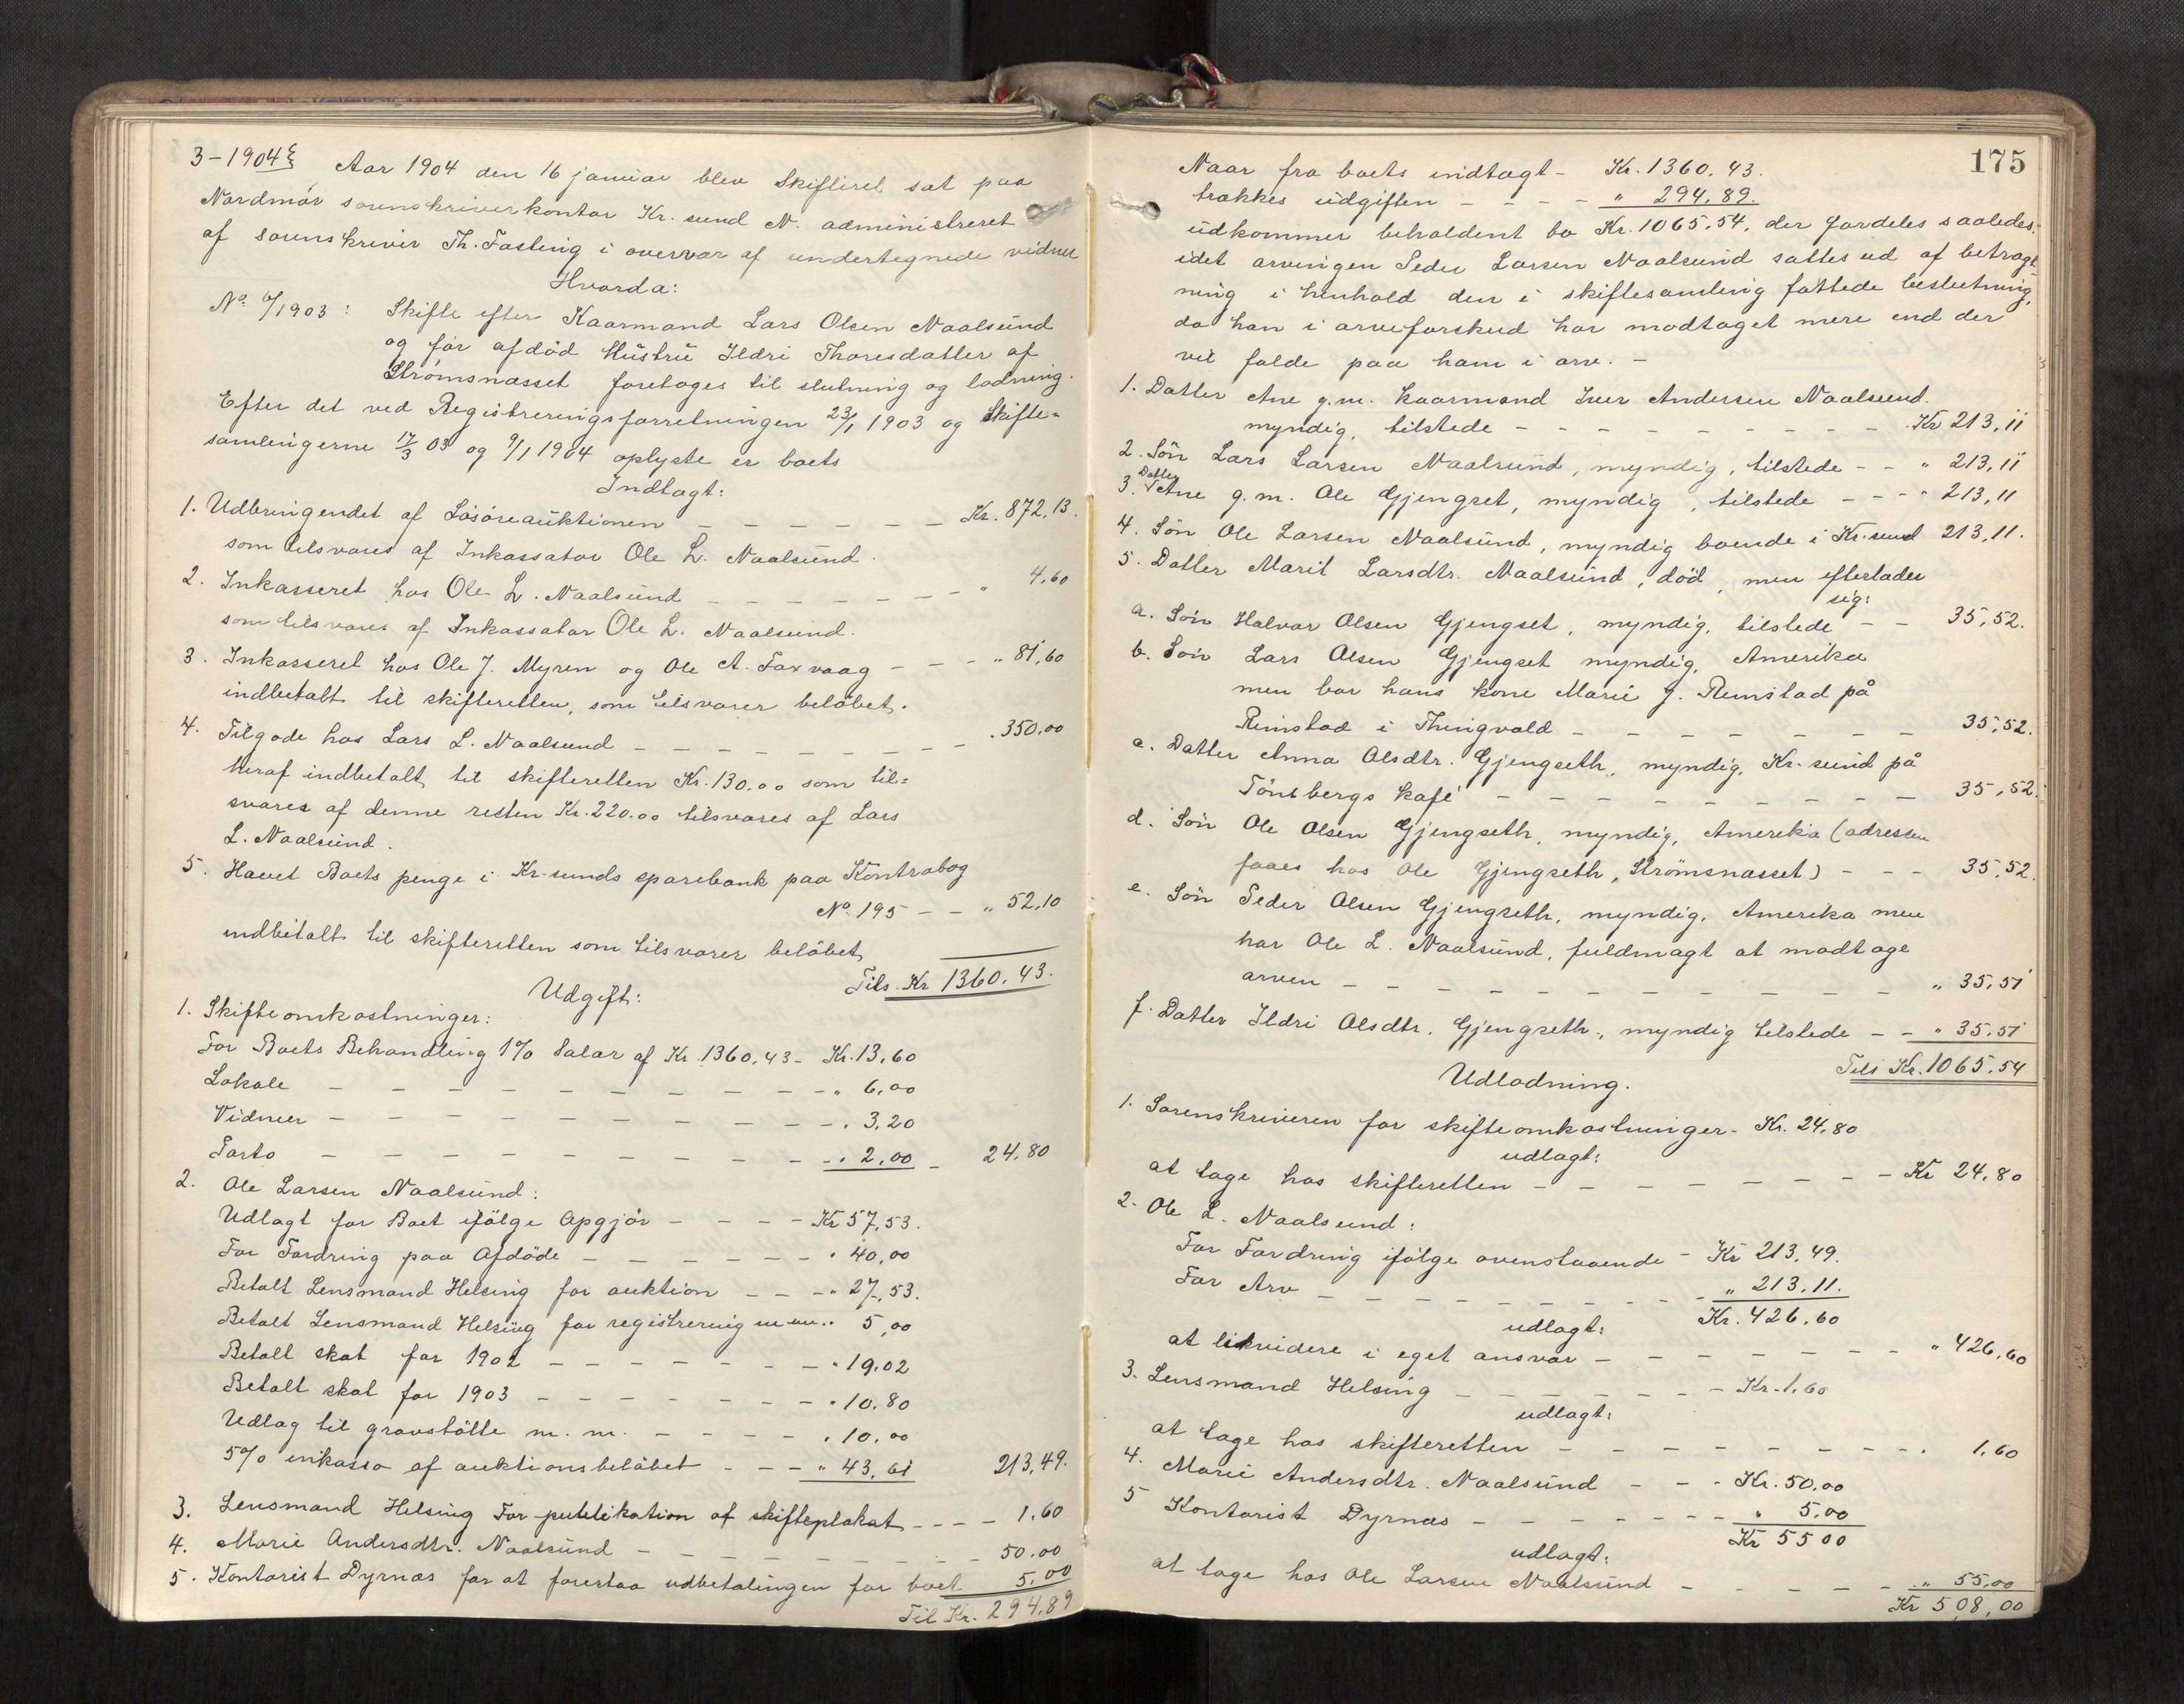 3-1904 Aar 1904 den 16 januar blev Skifteret sat paa
Nordmör sorenskriverkontor Kr. sund N. administreret
af sorenskriver Th. Fasting i overvær af undertegnede vidner
Hvorda:
No. 6/1903: Skifte efter Kaarmand Lars Olsen Naalsund
og før afdöd Hustru Ildri Thoresdatter af
Strömsnæsset foretoges til slutning og lodning.
Efter det ved Registreringsforretningen 23/1 1903 og Skifte-
samlingerne 17/3 03 og 9/1 1904 oplyste er boets
Indtægt:
1. Udbringendet af Lösöreauktionen - - - - - - Kr. 872,13.
som tilsvares af Inkassator Ole L. Naalsund.
2. Inkasseret hos Ole L. Naalsund - - - - - - - " 4,60
som tilsvares af Inkassator Ole L. Naalsund.
3. Inkasseret hos Ole J. Myren og Ole A. Faxvaag - - - " 81,60
indbetalt til skifteretten, som tilsvarer belöbet.
4. Tilgode hos Lars L. Naalsund - - - - - - - - - . 350,00
heraf indbetalt til skifteretten Kr. 130.00 som til=
svares af denne resten Kr. 220.00 tilsvares af Lars
L. Naalsund.
5. Havet Boets penge i Kr-sunds sparebank paa Kontrabog
No. 195 - - " 52,10
indbetalt til skifteretten som tilsvarer belöbet
Tils. Kr 1360.43.
Udgift:
1. Skifteomkostninger:
For Boets Behandling 1% Salær af Kr. 1360,43 - Kr. 13,60
Lokale - - - - - - - - " 6,00
Vidner - - - - - - - - - . 3,20
Porto - - - - - - - - - . 2,00 - 24.80
2. Ole Larsen Naalsund:
Udlagt for Boet ifölge Opgjör - - - - Kr 57,53.
For Fordring paa Afdöde - - - - - - " 40,00
Betalt Lensmand Helsing for auktion - - - " 27,53.
Betalt Lensmand Helsing for registrering m.m. . 5,00
Betalt skat for 1902 - - - - - - - " 19.02
Betalt skat for 1903 - - - - - - - " 10.80
Udlæg til gravstötte m. m. - - - - . 10.00
5% inkasso af auktionsbelöbet - - - " 43,61 213,49.
3. Lensmand Helsing For publikation af skifteplakat - - - - 1.60
4. Marie Andersdtr. Naalsund - - - - - - - - - 50.00
5. Kontorist Dyrnæs for at forestaa udbetalingen for boet 5.00
Til Kr. 294.89
175
Naar fra boets indtægt - Kr. 1360.43.
trækkes udgiften - - - - " 294,89.
udkommer beholdent bo Kr. 1065,54, der fordeles saaledes:
idet arvingen Peder Larsen Naalsund sættes ud af betragt
ning i henhold den i skiftesamling fattede beslutning,
da han i arveforskud har modtaget mere end der
vil falde paa ham i arv. -
1. Datter Ane g.m. kaarmand Iver Andersen Naalsund.
myndig, tilstede - - - - - - - - - - Kr 213,11
2. Sön Lars Larsen Naalsund, myndig, tilstede - - " 213,11
3. Datter Ane g.m. Ole Gjengset, myndig, tilstede - - - " 213,11
4. Sön Ole Larsen Naalsund, myndig boende i Kr.sund 213,11.
5. Datter Marit Larsdtr. Naalsund, död, men efterlader
sig:
a. Sön Halvor Olsen Gjengset, myndig, tilstede - - 35,52.
b. Sön Lars Olsen Gjengset myndig, Amerika
men bor hans kone Marie J. Rimstad på
Rimstad i Thingvold - - - - - - - - 35,52.
c. Datter Anna Olsdtr. Gjengseth, myndig, Kr.sund på
Tönsbergs kafé - - - - - - - - - - 35,52.
d. Sön Ole Olsen Gjengseth, myndig, Amerika (adressen
faaes hos Ole Gjengseth, Strömsnæsset) - - - 35,52.
e. Sön Peder Olsen Gjengseth, myndig, Amerika men
har Ole L. Naalsund, fuldmagt at modtage
arven - - - - - - - - - - - " 35,51
f. Datter Ildri Olsdtr. Gjengseth, myndig tilstede - - " 35.51
Tils Kr. 1065,54
Udlodning.
1. Sorenskriveren for skifteomkostninger - Kr. 24,80
udlagt:
at tage hos skifteretten - - - - - - - - Kr 24,80
2. Ole L. Naalsund:
For Fordring ifölge ovenstaaende - Kr 213,49.
For Arv - - - - - - - - " 213.11.
Kr. 426.60
udlagt:
at likvidere i eget ansvar - - - - - - - - " 426,60
3. Lensmand Helsing - - - - - - - Kr. 1,60
udlagt:
at tage hos skifteretten - - - - - - - - - . 1,60
4. Marie Andersdtr. Naalsund - - - Kr. 50.00
5 Kontorist Dyrnæs - - - - - - - " 5.00
Kr 55 00
udlagt:
at tage hos Ole Larsen Naalsund - - - - - " 55,00
Kr 508,00